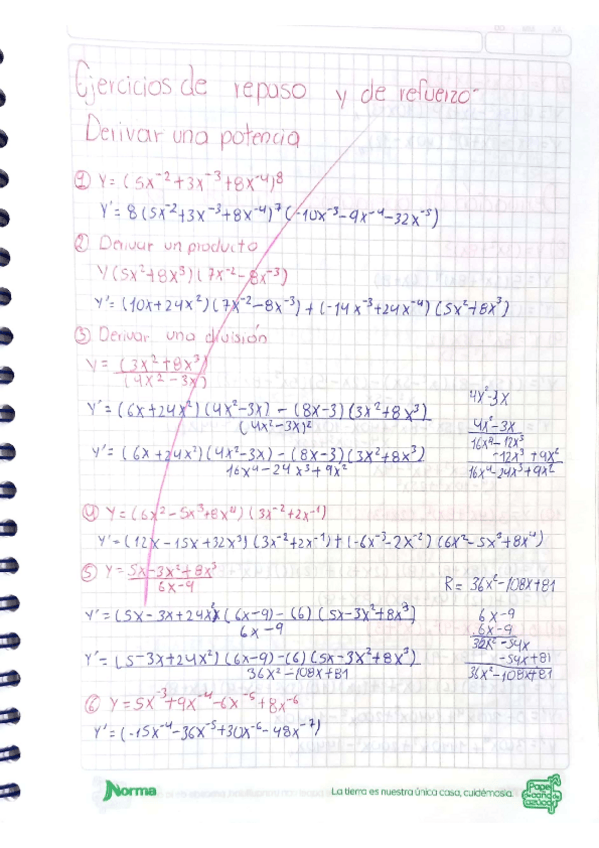 Ejercicios de repuso y de refuerzo
Derivar una potencia
① Y = (5x⁻²+3x⁻³+8x⁻⁴)⁸
Y' = 8(5x⁻²+3x⁻³+8x⁻⁴)⁷(-10x⁻³-9x⁻⁴-32x⁻⁵)
② Derivar un producto
Y(5x²+8x³)(7x⁻²-8x⁻³)
Y' = (10x+24x²)(7x⁻²-8x⁻³)+(-14x⁻³+24x⁻⁴)(5x²+8x³)
③ Derivar una división
Y = (3x²+8x³)
(4x²-3x)
Y' = (6x+24x²)(4x²-3x) - (8x-3)(3x²+8x³)
(4x²-3x)²
Y' = (6x+24x²)(4x²-3x) - (8x-3)(3x²+8x³)
16x⁴-24x³+9x²
4x²-3x
4x²-3x
16x⁴-12x³
-12x³+9x²
16x⁴-24x³+9x²
④ Y = (6x²-5x³+8x⁴)(3x⁻²+2x⁻¹)
Y' = (12x-15x+32x³)(3x⁻²+2x⁻¹)+(-6x⁻³-2x⁻²)(6x²-5x³+8x⁴)
⑤ Y = 5x-3x²+8x³
6x-9
Y' = (5x-3x+24x²)(6x-9)-(6)(5x-3x²+8x³)
6x-9
Y' = (5-3x+24x²)(6x-9)-(6)(5x-3x²+8x³)
36x²-108x+81
R = 36x²-108x+81
6x-9
6x-9
36x²-54x
-54x+81
36x²-108x+81
⑥ Y = 5x⁻³+9x⁻⁴-6x⁻⁵+8x⁻⁶
Y' = (-15x⁻⁴-36x⁻⁵+30x⁻⁶-48x⁻⁷)
Norma
La tierra es nuestra única casa, cuidémosla.
Papel de caña de azúcar